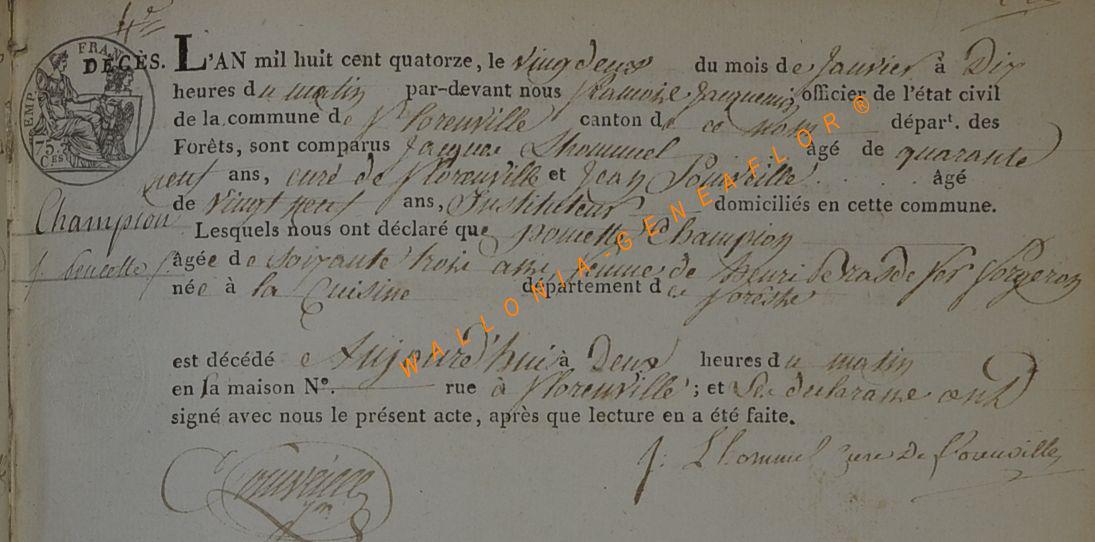 4e
DÉCÈS. L'AN mil huit cent quatorze, le vingt deux du mois de Janvier à Dix
heures du matin par-devant nous Jacquemin officier de l'état civil
de la commune de florenville canton de ce nom départ. des
Forêts, sont comparus Jacque Lhommel âgé de quarante
neuf ans, curé de florenville et Jean Pouveille âgé
de vingt neuf ans, Instituteur domiciliés en cette commune.
Lesquels nous ont déclaré que Champion
âgée de soixante trois ans de henri forgeron
née à la Cuisine département de
est décédée Aujourd'hui à Deux heures du matin
en la maison N°. rue à florenville ; et les ont
signé avec nous le présent acte, après que lecture en a été faite.
Champion
J. Lhommel curé de florenville
FRAN
TIMB
75.
CES
WALLONIA-GENEAFLOR ®